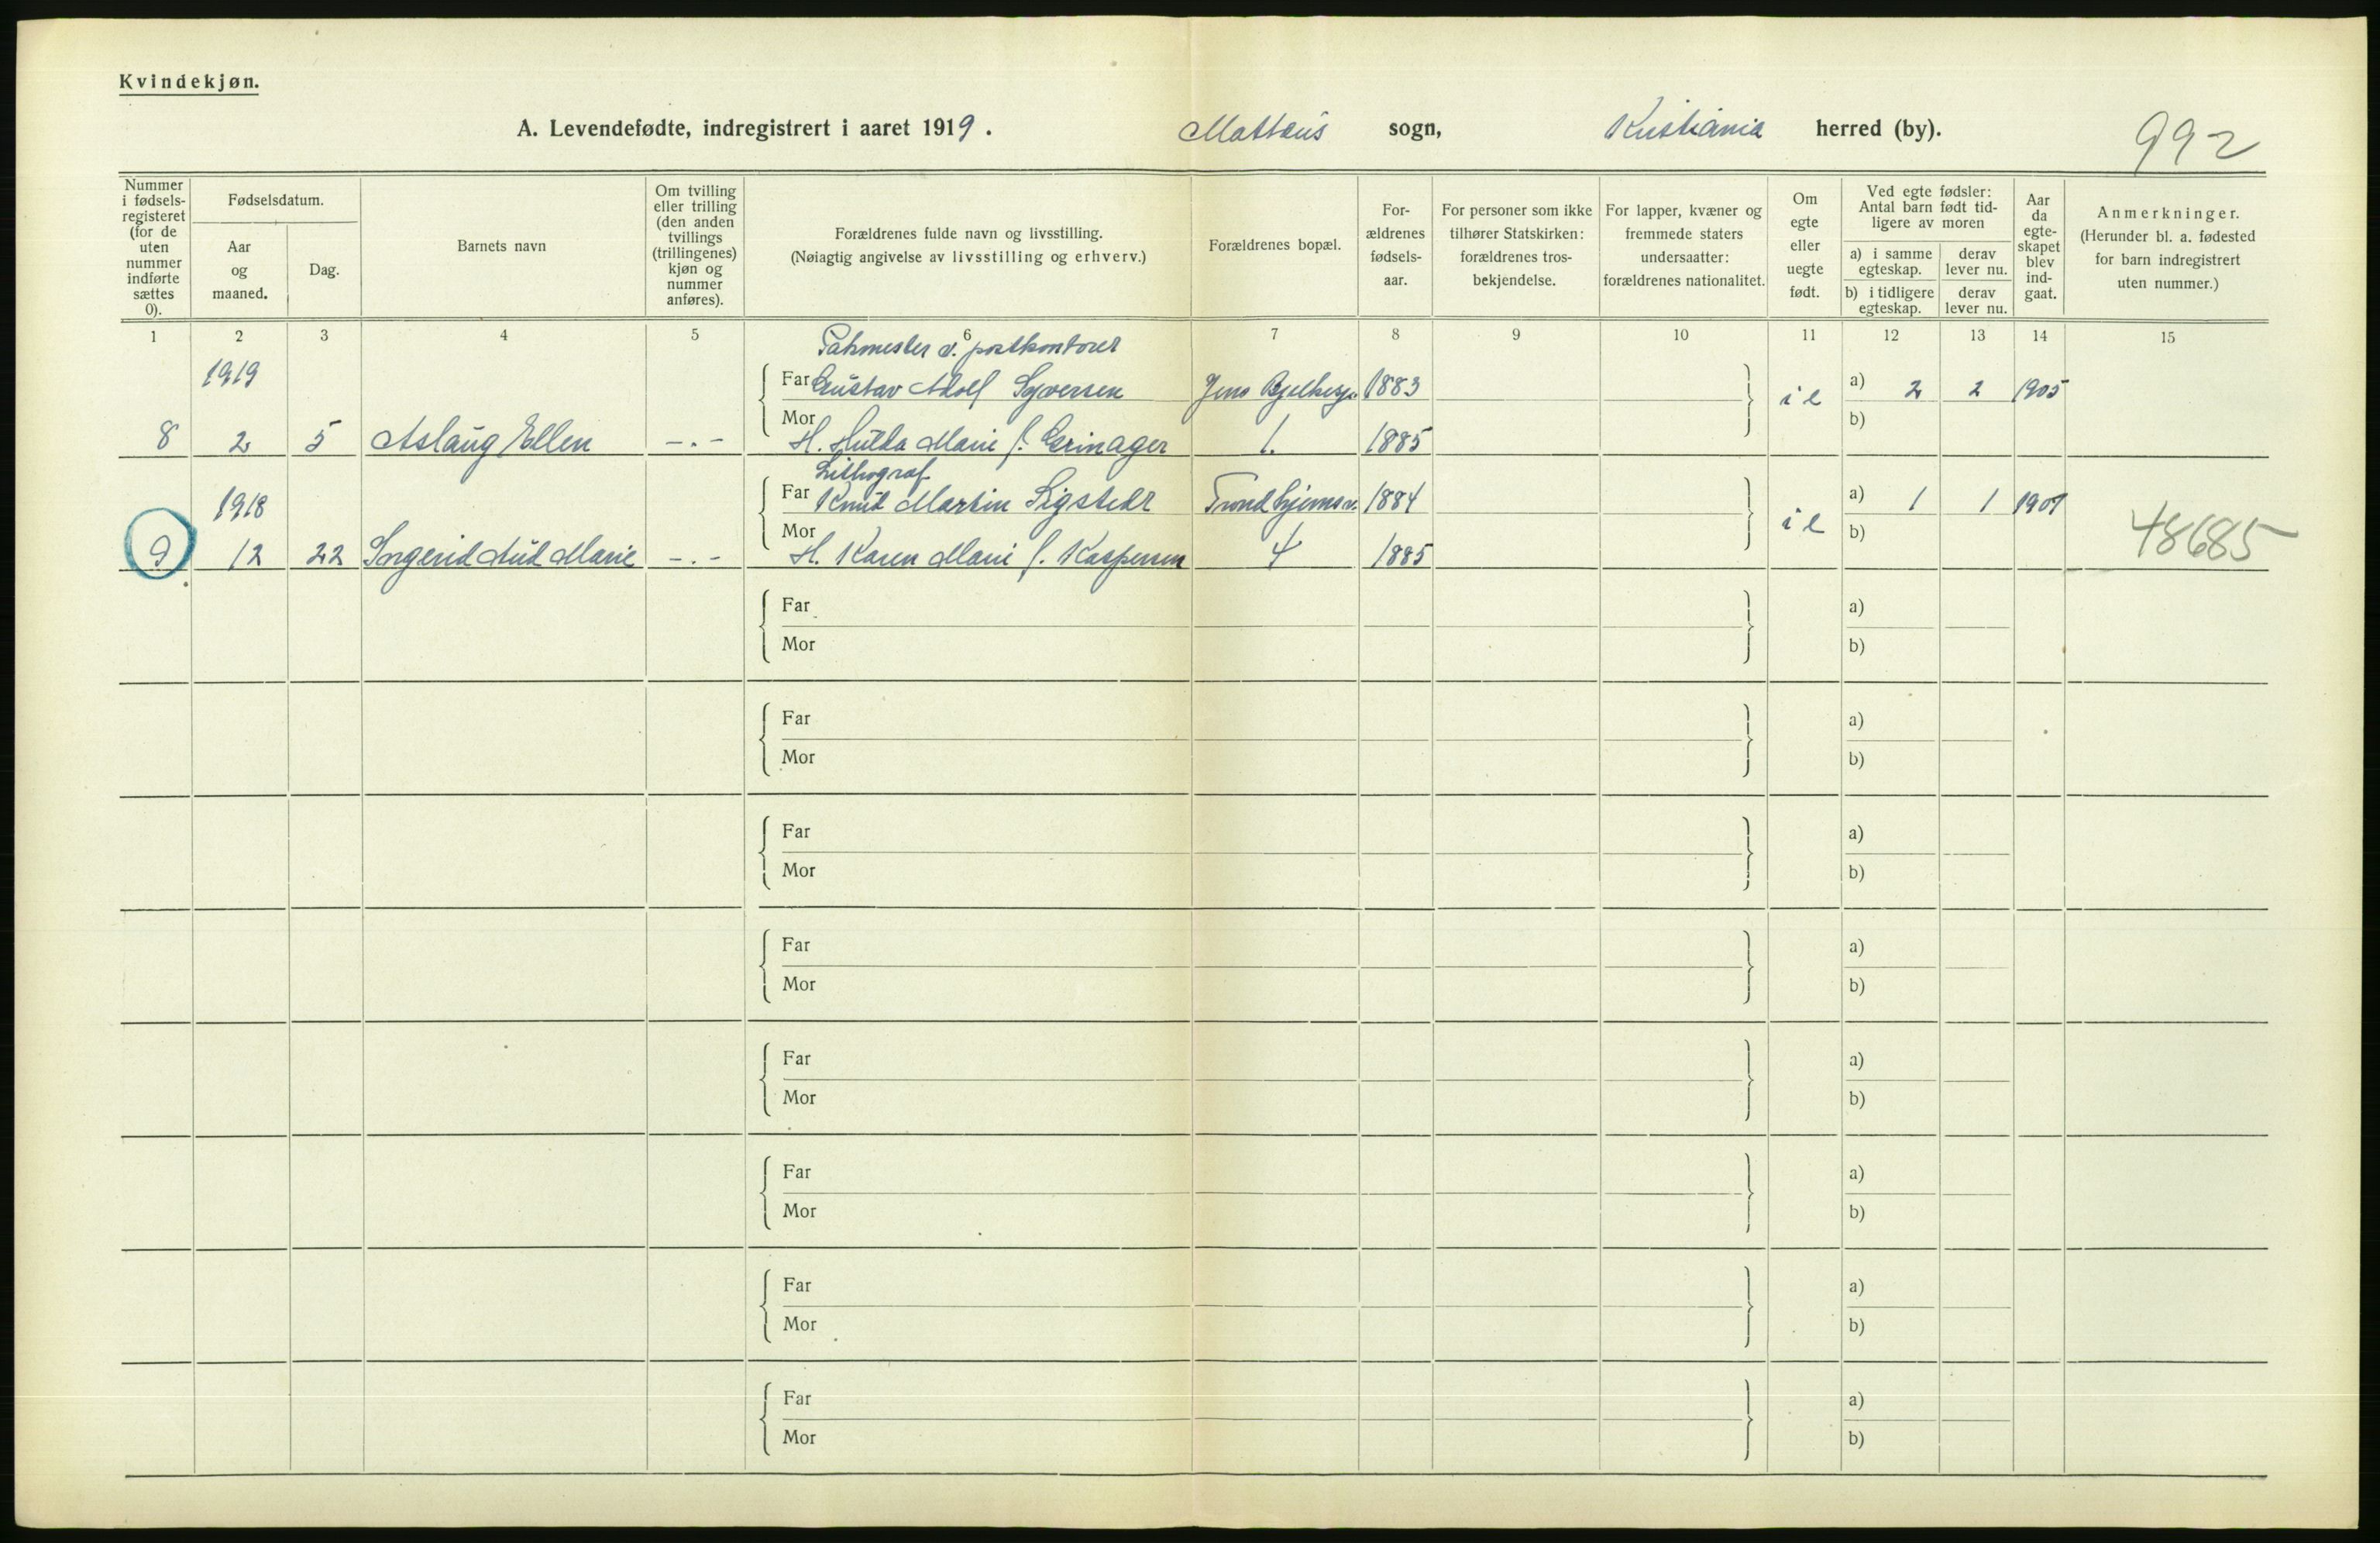 Kvindekjøn.
A. Levendefødte, indregistrert i aaret 1919. Mattæus sogn, Kristiania herred (by). 992
Nummer i fødsels-registeret (for de uten nummer indførte sættes 0).
Fødselsdatum.
Aar og maaned.
Dag.
Barnets navn
Om tvilling eller trilling (den anden tvillings (trillingenes) kjøn og nummer anføres).
Forældrenes fulde navn og livsstilling.
(Nøiagtig angivelse av livsstilling og erhverv.)
Forældrenes bopæl.
For-ældrenes fødsels-aar.
For personer som ikke tilhører Statskirken: forældrenes tros-bekjendelse.
For lapper, kvæner og fremmede staters undersaatter: forældrenes nationalitet.
Om egte eller uegte født.
Ved egte fødsler: Antal barn født tid-ligere av moren
a) i samme egteskap. derav lever nu.
b) i tidligere egteskap. derav lever nu.
Aar da egte-skapet blev ind-gaat.
Anmerkninger.
(Herunder bl. a. fødested for barn indregistrert uten nummer.)
1 2 3 4 5 6 7 8 9 10 11 12 13 14 15
Pakmester v. postkontoret
1919 Far Gustav Adolf Syversen Jens Bjelkesgt. 1883 i e a) 2 2 1905
Mor b)
8 2 5 Aslaug Ellen —.— H. Hulda Marie f. Grinager 1. 1885
Lithograf
1918 Far Knut Martin Sigstedt Trondhjemsv. 1884 i e a) 1 1 1907
Mor b) 48685
9 12 22 Ingerid Aud Marie —.— H. Karen Marie f. Kaspersen 4 1885
Far a)
Mor b)
Far a)
Mor b)
Far a)
Mor b)
Far a)
Mor b)
Far a)
Mor b)
Far a)
Mor b)
Far a)
Mor b)
Far a)
Mor b)